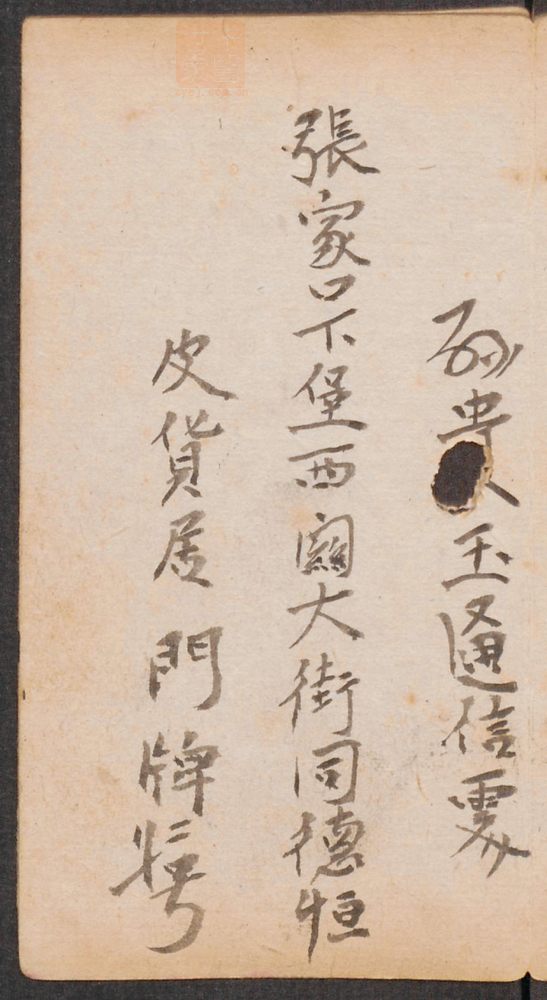 貴玉通信處
張家口下堡西關大街同德恒
皮貨居門牌